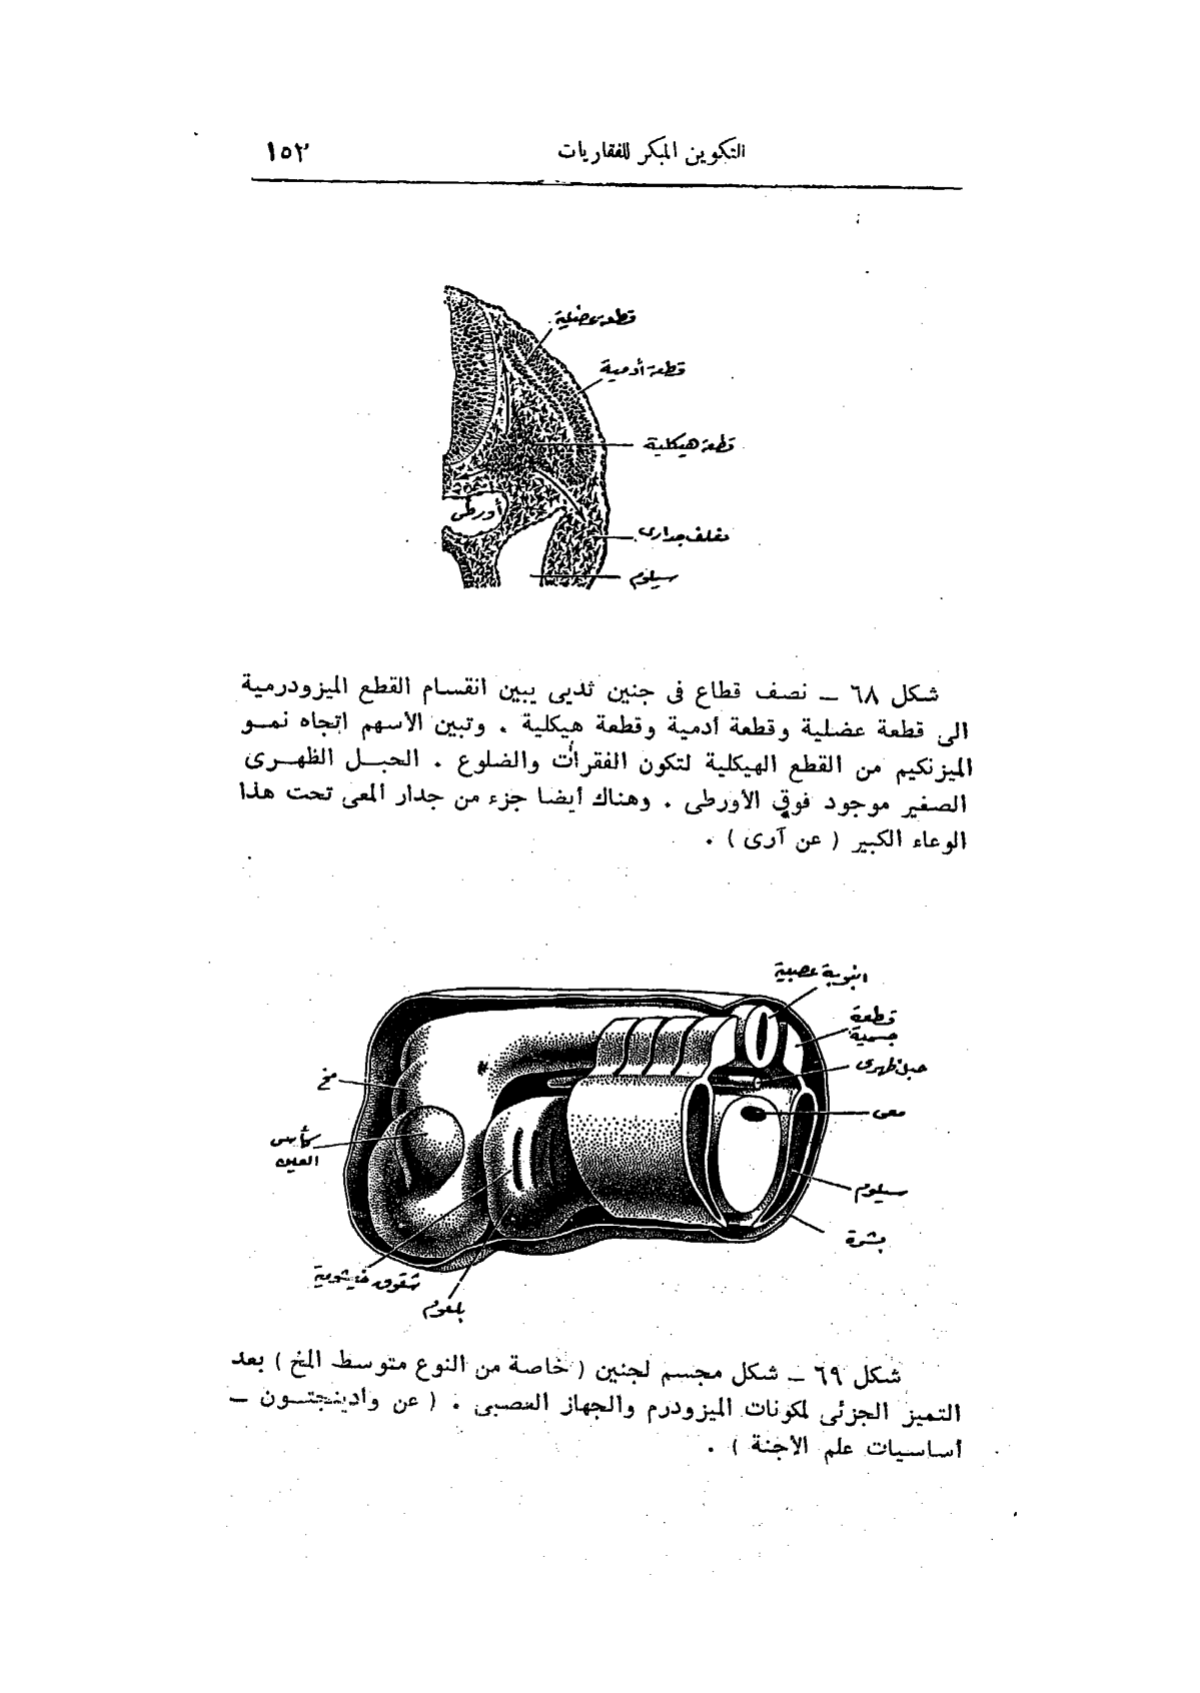 التكوين المبكر للفقاريات ١٥٣
قطعة عضلية
قطعة أدمية
قطعة هيكلية
أورطى
مغلف جدارى
سيلوم
شكل ٦٨ ــ نصف قطاع فى جنين ثديى يبين انقسام القطع الميزودرمية
الى قطعة عضلية وقطعة أدمية وقطعة هيكلية . وتبين الأسهم اتجاه نمـو
الميزنكيم من القطع الهيكلية لتكون الفقرات والضلوع . الحبـل الظهـرى
الصغير موجود فوق الأورطى . وهناك أيضا جزء من جدار المعى تحت هذا
الوعاء الكبير ( عن آرى ) .
انبوبة عصبية
قطعة
جسمية
حبل ظهرى
مخ
معى
كأس
العين
سيلوم
بشرة
شقوق خيشومية
بلعوم
شكل ٦٩ ــ شكل مجسم لجنين ( خاصة من النوع متوسط المخ ) بعد
التميز الجزئى لمكونات الميزودرم والجهاز العصبى . ( عن وادينجتـون ــ
أساسيات علم الأجنة ) .